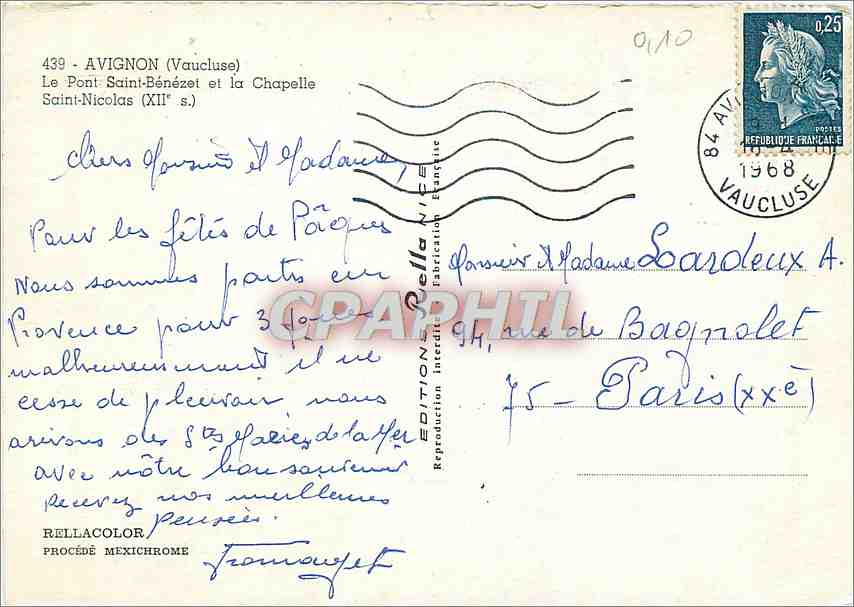 439 - AVIGNON (Vaucluse)
Le Pont Saint-Bénézet et la Chapelle
Saint-Nicolas (XIIe s.)
Chers Monsieur et Madame,
Pour les fêtes de Pâques
Nous sommes partis en
Provence pour 3 jours
malheureusement il ne
cesse de pleuvoir nous
arivons des Stes Maries de la Mer
avec nôtre bon souvenir
recevez nos meilleures
pensées.
RELLACOLOR
PROCÉDÉ MEXICHROME
EDITIONS Rella NICE
Reproduction Interdite - Fabrication Française
CPARHTI
0,10
0,25
POSTES
REPUBLIQUE FRANÇAISE
84 AVIGNON
1968
VAUCLUSE
Monsieur et Madame Lardeux A.
94, rue de Bagnolet
75 - Paris (XXè)